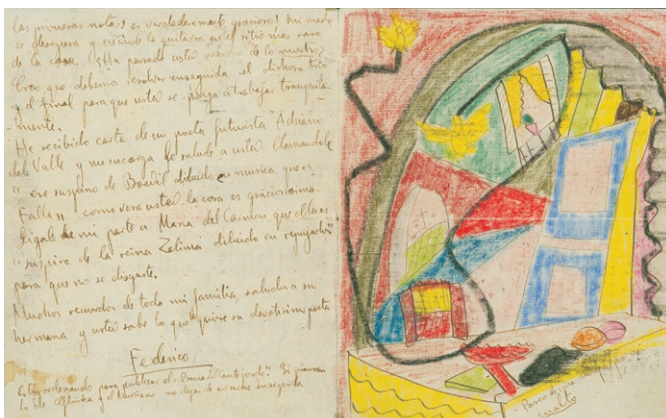 las primeras notas! es verdaderamente gracioso! Mi madre
se desespera y esconde la guitarra en el sitio mas raro
de la casa. ¿Ha pensado usted mucho de lo nuestro?
Creo que debemos resolver enseguida el dichoso trio
y el final para que usted se ponga a trabajar tranquila-
-mente.
He recibido carta de un poeta futurista Adriano
del Valle y me encarga le salude a usted llamandole
"ese suspiro de Boabdil diluido en musica que es
Falla" como vera usted la cosa es graciosisima.
Digale de mi parte a Maria del Carmen que ella es
"suspiro de la reina Zelima diluido en repujados"
para que no se disguste.
Muchos recuerdos de toda mi familia, saluda a su
hermana y usted sabe lo que quiere su devotisimo poeta
Federico
Estoy ordenando para publicar el "Poema del Cante jondo". Si piensan
no dejen de avisarme enseguida.
Paseo de una